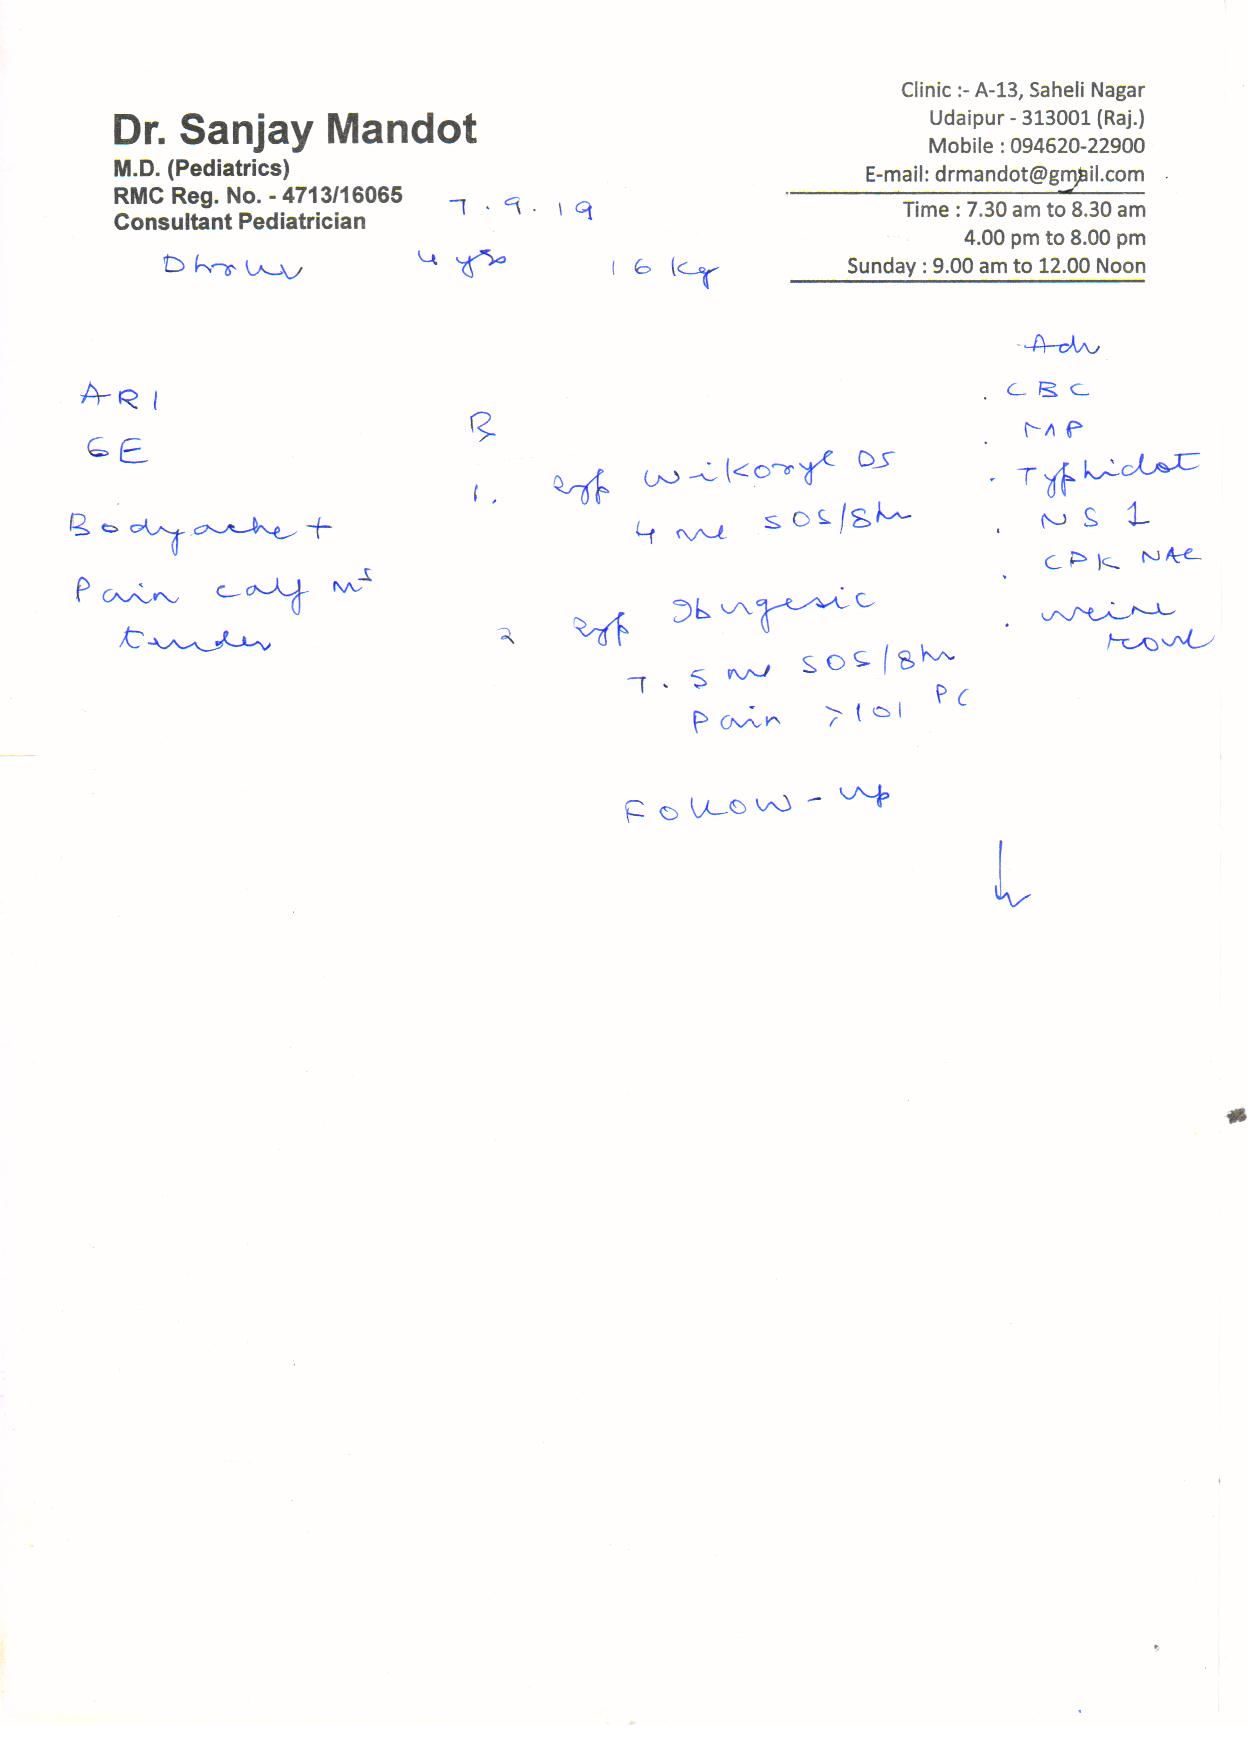 Dr. Sanjay Mandot
M.D. (Pediatrics)
RMC Reg. No. - 4713/16065
Consultant Pediatrician
Clinic :- A-13, Saheli Nagar
Udaipur - 313001 (Raj.)
Mobile : 094620-22900
E-mail: drmandot@gmail.com
Time : 7.30 am to 8.30 am
4.00 pm to 8.00 pm
Sunday : 9.00 am to 12.00 Noon
7.9.19
Dhruv 4 yrs 16 Kg
ARI
GE
Bodyache +
Pain calf ms
tender
Rx
1. Syp Wikoryl DS
4 ml SOS/8hr
2 Syp Ibugesic
7.5 ml SOS/8hr
Pain >101 PC
Follow-up
Adv
. CBC
. MP
. Typhidot
. NS 1
. CPK NAC
. urine